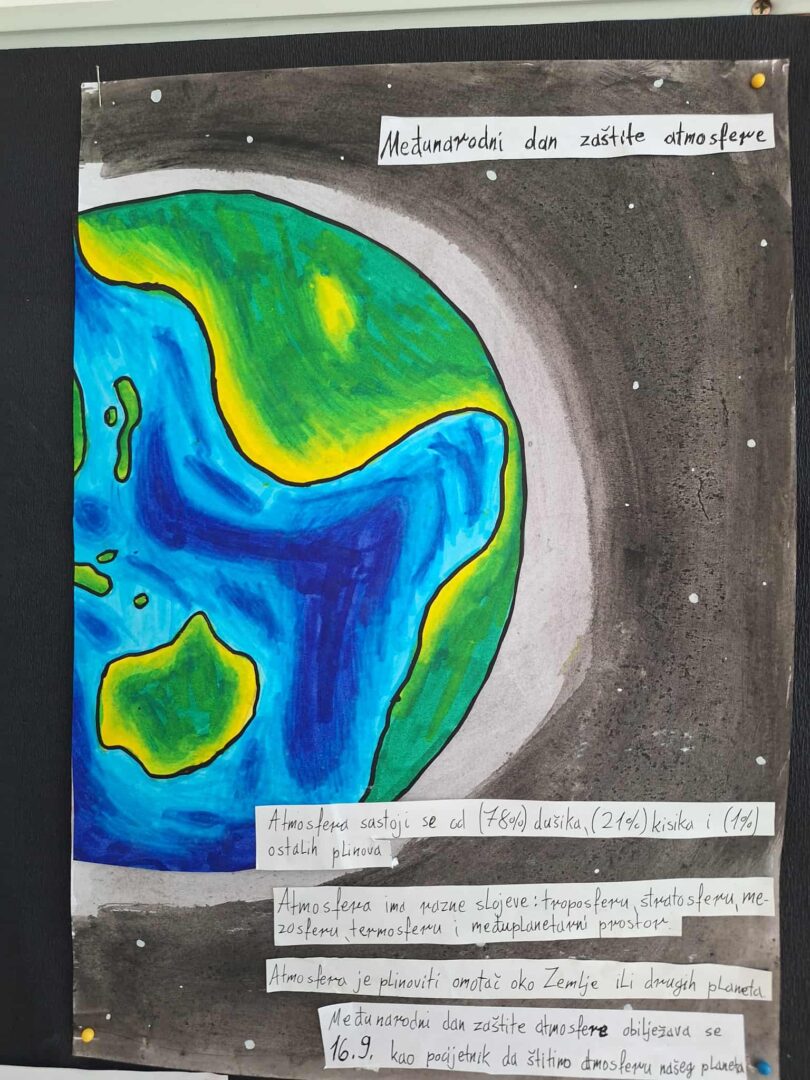 Međunarodni dan zaštite atmosfere
Atmosfera sastoji se od (78%) dušika, (21%) kisika i (1%)
ostalih plinova
Atmosfera ima razne slojeve: troposferu, stratosferu, me-
zosferu, termosferu i međuplanetarni prostor.
Atmosfera je plinoviti omotač oko Zemlje ili drugih planeta.
Međunarodni dan zaštite atmosfere obilježava se
16.9. kao pocijetnik da štitimo atmosferu našeg planeta